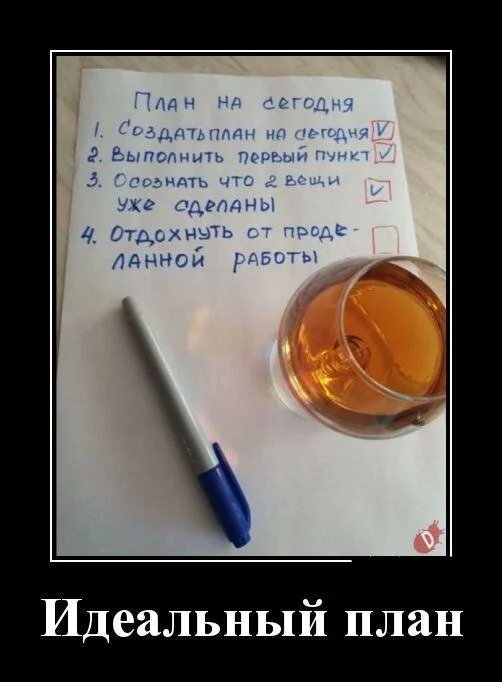 План на сегодня
1. Создать план на сегодня
2. Выполнить первый пункт
3. Осознать что 2 вещи
уже сделаны
4. Отдохнуть от проде-
ланной работы
D
Идеальный план